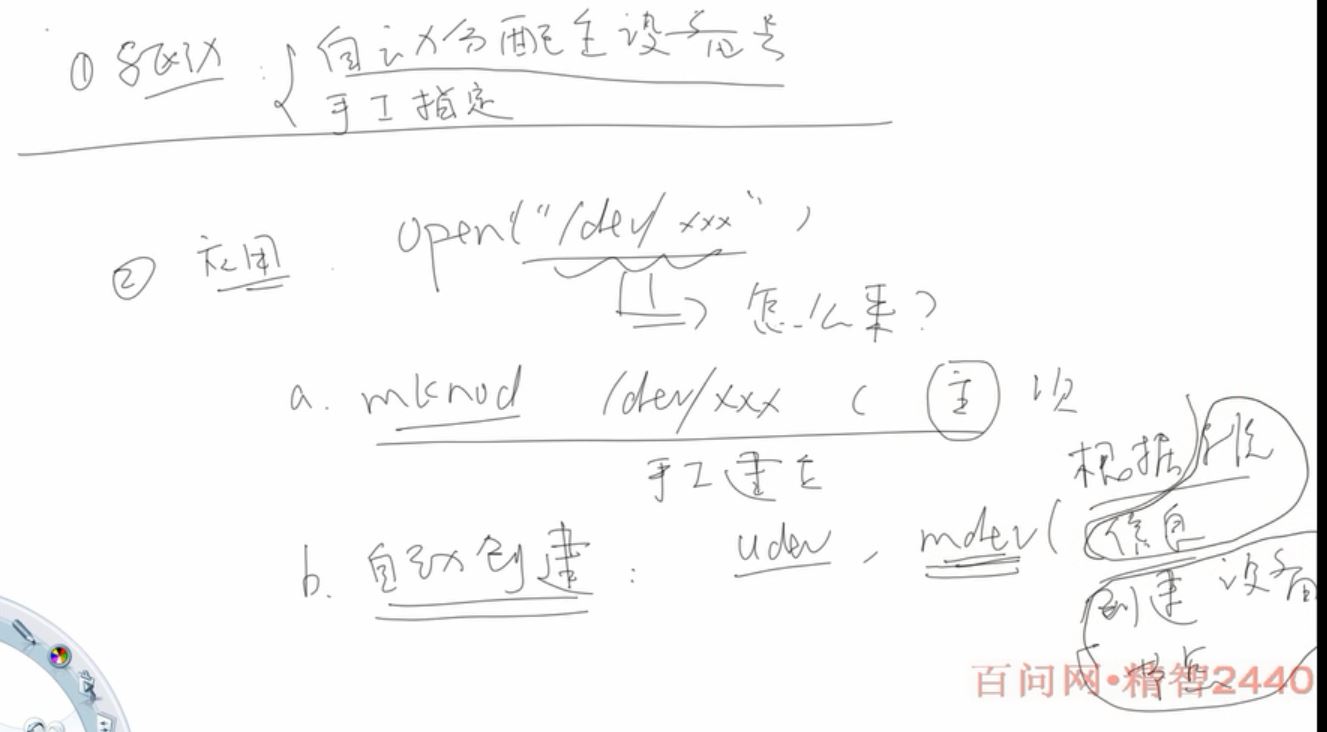 ① 驱动：{自动分配主设备号
手工指定
② 应用 open("/dev/xxx",
怎么来?
a. mknod /dev/xxx c 主 次
手工建立
b. 自动创建: udev, mdev(根据系统
信息
创建设备
节点
百问网•精智2440